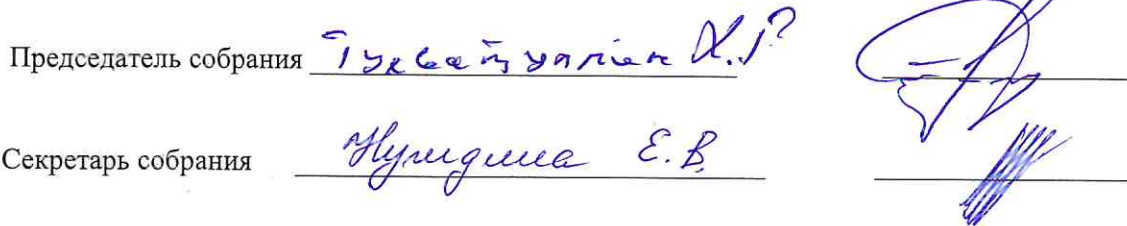 Председатель собрания Тухватуллин Х.Г.
Секретарь собрания Е.В.